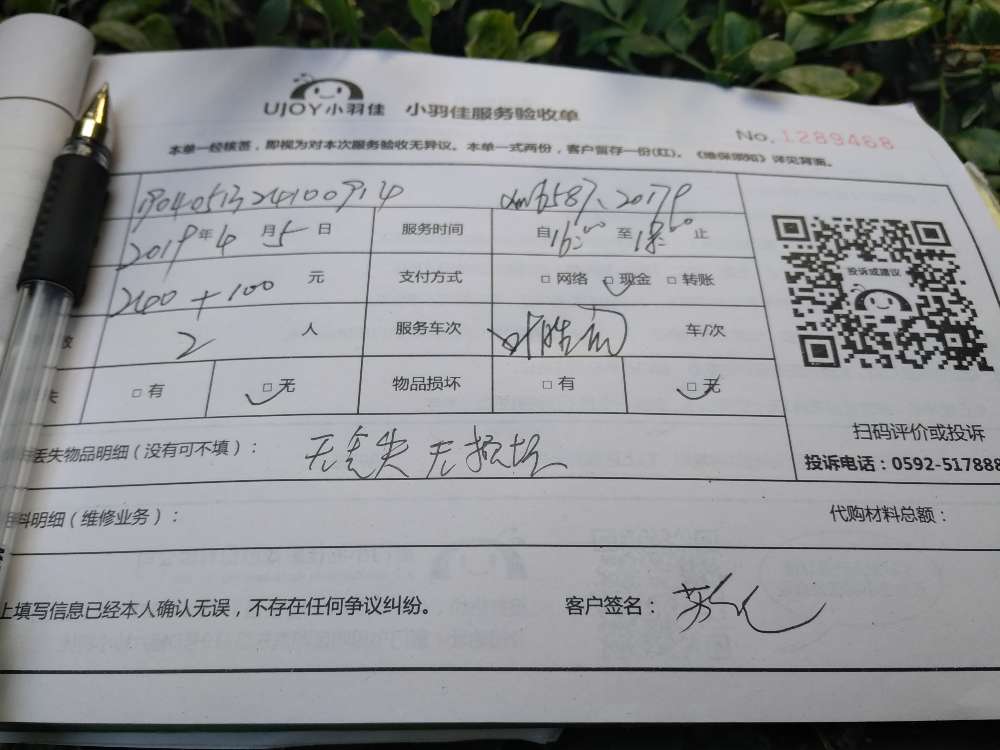 UJOY小羽佳 小羽佳服务验收单
No. 1289468
本单一经核签，即视为对本次服务验收无异议。本单一式两份，客户留存一份(红)。《维保须知》详见背面。
2019年4月5日 服务时间 自16:00至18:00止
200+100元 支付方式 □网络 □现金 □转账
2人 服务车次 车/次
□有 □无 物品损坏 □有 □无
投诉或建议
扫码评价或投诉
投诉电话：0592-517888
丢失物品明细（没有可不填）： 无丢失 无损坏
料明细（维修业务）： 代购材料总额：
上填写信息已经本人确认无误，不存在任何争议纠纷。 客户签名：